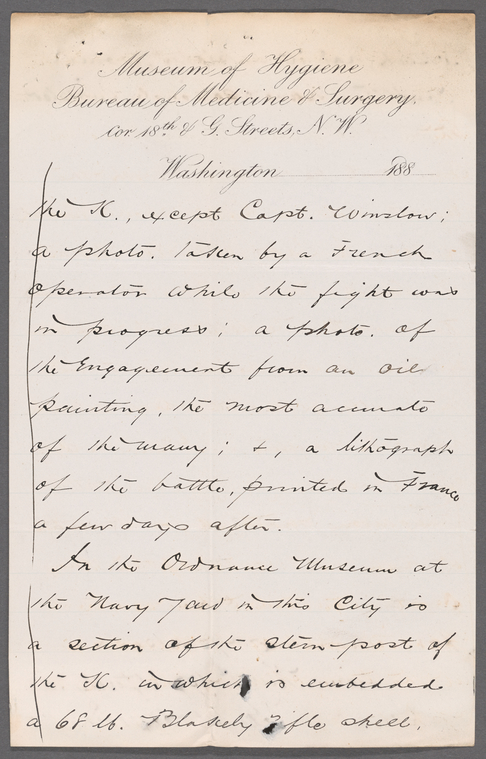 Museum of Hygiene
Bureau of Medicine & Surgery.
Cor 18th & G. Streets, N. W.
Washington 188
the K., except Capt. Winslow;
a photo. taken by a French
operator while the fight was
in progress; a photo. of
the Engagement from an oil
painting, the most accurate
of the many; +, a lithograph
of the battle, printed in France
a few days after.
In the Ordnance Museum at
the Navy Yard in this City is
a section of the stern post of
the K. in which is embedded
a 68 lb. Blakely rifle shell,